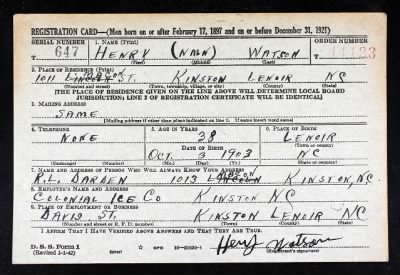 REGISTRATION CARD—(Men born on or after February 17, 1897 and on or before December 31, 1921)
SERIAL NUMBER 1. NAME (Print) ORDER NUMBER
647 HENRY (NMN) WATSON 11123
2. PLACE OF RESIDENCE (Print)
1011 LINCOLN ST. KINSTON LENOIR NC
(Number and street) (Town, township, village, or city) (County) (State)
[THE PLACE OF RESIDENCE GIVEN ON THE LINE ABOVE WILL DETERMINE LOCAL BOARD
JURISDICTION; LINE 2 OF REGISTRATION CERTIFICATE WILL BE IDENTICAL]
3. MAILING ADDRESS
SAME
[Mailing address if other than place indicated on line 2. If same insert word same]
4. TELEPHONE 5. AGE IN YEARS 6. PLACE OF BIRTH
NONE 38 LENOIR
DATE OF BIRTH (Town or county)
OCT. 3 1903 NC
(Exchange) (Number) (Mo.) (Day) (Yr.) (State or country)
7. NAME AND ADDRESS OF PERSON WHO WILL ALWAYS KNOW YOUR ADDRESS
R.L. BARDEN 1013 LINCOLN KINSTON, NC
8. EMPLOYER'S NAME AND ADDRESS
COLONIAL ICE CO KINSTON NC
9. PLACE OF EMPLOYMENT OR BUSINESS
DAVIS ST. KINSTON LENOIR NC
(Number and street or R. F. D. number) (Town) (County) (State)
I AFFIRM THAT I HAVE VERIFIED ABOVE ANSWERS AND THAT THEY ARE TRUE.
D. S. S. Form 1
(Revised 1-1-42) GPO 16—21630-1 Henry Watson
(Registrant's signature)